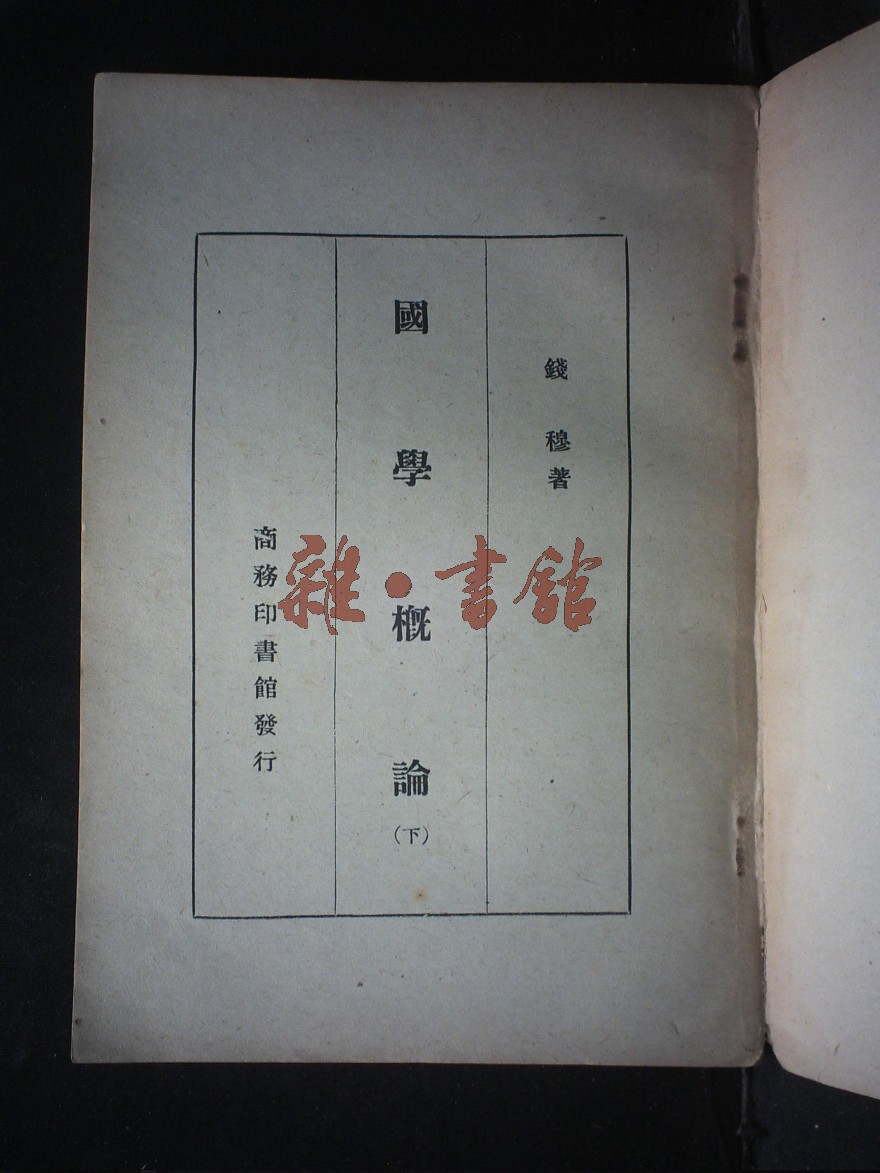 錢穆著
國學概論
（下）
商務印書館發行
雜·書館